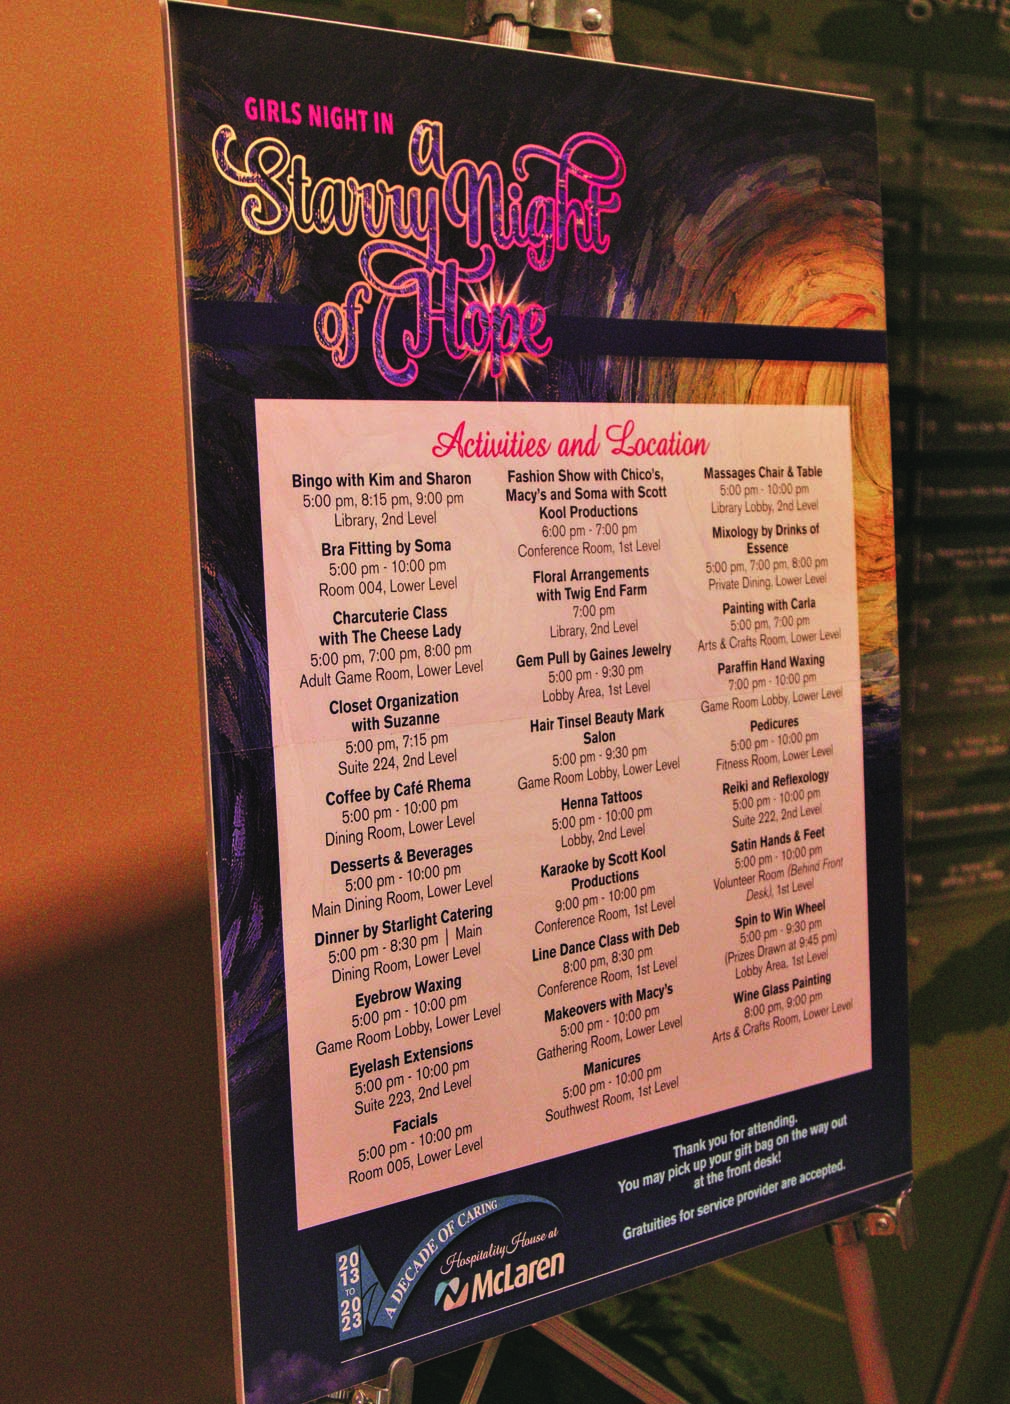 GIRLS NIGHT IN
a
Starry Night
of Hope
Activities and Location
Bingo with Kim and Sharon
5:00 pm, 8:15 pm, 9:00 pm
Library, 2nd Level
Bra Fitting by Soma
5:00 pm - 10:00 pm
Room 004, Lower Level
Charcuterie Class
with The Cheese Lady
5:00 pm, 7:00 pm, 8:00 pm
Adult Game Room, Lower Level
Closet Organization
with Suzanne
5:00 pm, 7:15 pm
Suite 224, 2nd Level
Coffee by Café Rhema
5:00 pm - 10:00 pm
Dining Room, Lower Level
Desserts & Beverages
5:00 pm - 10:00 pm
Main Dining Room, Lower Level
Dinner by Starlight Catering
5:00 pm - 8:30 pm | Main
Dining Room, Lower Level
Eyebrow Waxing
5:00 pm - 10:00 pm
Game Room Lobby, Lower Level
Eyelash Extensions
5:00 pm - 10:00 pm
Suite 223, 2nd Level
Facials
5:00 pm - 10:00 pm
Room 005, Lower Level
Fashion Show with Chico's,
Macy's and Soma with Scott
Kool Productions
6:00 pm - 7:00 pm
Conference Room, 1st Level
Floral Arrangements
with Twig End Farm
7:00 pm
Library, 2nd Level
Gem Pull by Gaines Jewelry
5:00 pm - 9:30 pm
Lobby Area, 1st Level
Hair Tinsel Beauty Mark
Salon
5:00 pm - 9:30 pm
Game Room Lobby, Lower Level
Henna Tattoos
5:00 pm - 10:00 pm
Lobby, 2nd Level
Karaoke by Scott Kool
Productions
9:00 pm - 10:00 pm
Conference Room, 1st Level
Line Dance Class with Deb
8:00 pm, 8:30 pm
Conference Room, 1st Level
Makeovers with Macy's
5:00 pm - 10:00 pm
Gathering Room, Lower Level
Manicures
5:00 pm - 10:00 pm
Southwest Room, 1st Level
Massages Chair & Table
5:00 pm - 10:00 pm
Library Lobby, 2nd Level
Mixology by Drinks of
Essence
5:00 pm, 7:00 pm, 8:00 pm
Private Dining, Lower Level
Painting with Carla
5:00 pm, 7:00 pm
Arts & Crafts Room, Lower Level
Paraffin Hand Waxing
7:00 pm - 10:00 pm
Game Room Lobby, Lower Level
Pedicures
5:00 pm - 10:00 pm
Fitness Room, Lower Level
Reiki and Reflexology
5:00 pm - 10:00 pm
Suite 222, 2nd Level
Satin Hands & Feet
5:00 pm - 10:00 pm
Volunteer Room (Behind Front
Desk), 1st Level
Spin to Win Wheel
5:00 pm - 9:30 pm
(Prizes Drawn at 9:45 pm)
Lobby Area, 1st Level
Wine Glass Painting
8:00 pm, 9:00 pm
Arts & Crafts Room, Lower Level
Thank you for attending.
You may pick up your gift bag on the way out
at the front desk!
Gratuities for service provider are accepted.
2013 TO 2023
A DECADE OF CARING
Hospitality House at
McLaren